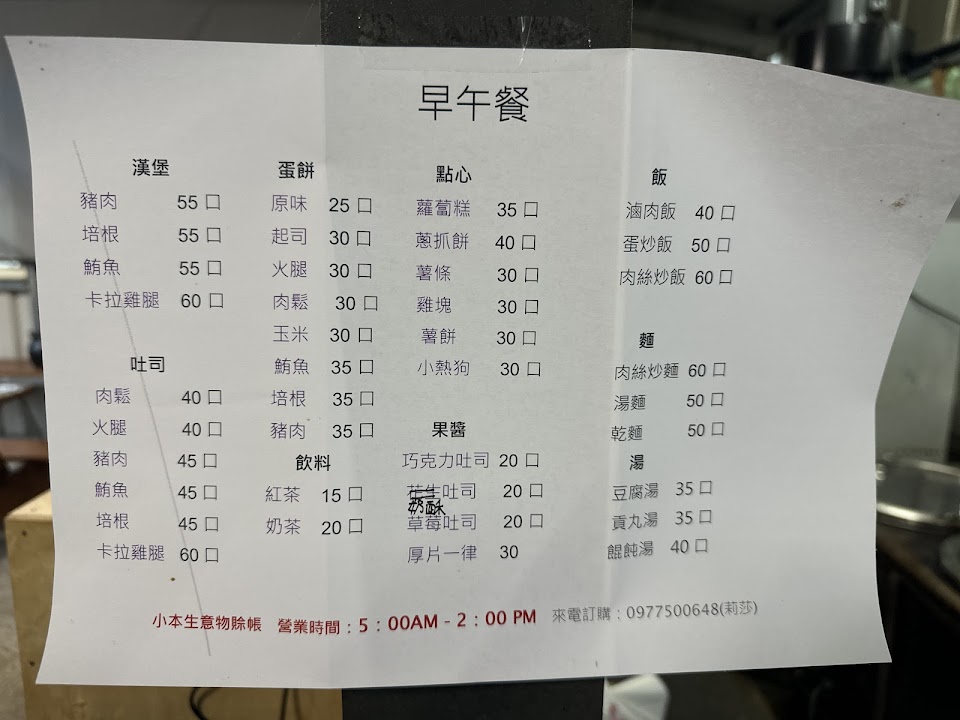 早午餐
漢堡
豬肉 55 口
培根 55 口
鮪魚 55 口
卡拉雞腿 60 口
吐司
肉鬆 40 口
火腿 40 口
豬肉 45 口
鮪魚 45 口
培根 45 口
卡拉雞腿 60 口
蛋餅
原味 25 口
起司 30 口
火腿 30 口
肉鬆 30 口
玉米 30 口
鮪魚 35 口
培根 35 口
豬肉 35 口
飲料
紅茶 15 口
奶茶 20 口
點心
蘿蔔糕 35 口
蔥抓餅 40 口
薯條 30 口
雞塊 30 口
薯餅 30 口
小熱狗 30 口
果醬
巧克力吐司 20 口
花生吐司 20 口
奶酥
草莓吐司 20 口
厚片一律 30
飯
滷肉飯 40 口
蛋炒飯 50 口
肉絲炒飯 60 口
麵
肉絲炒麵 60 口
湯麵 50 口
乾麵 50 口
湯
豆腐湯 35 口
貢丸湯 35 口
餛飩湯 40 口
小本生意物賒帳 營業時間：5：00AM - 2：00 PM 來電訂購：0977500648(莉莎)